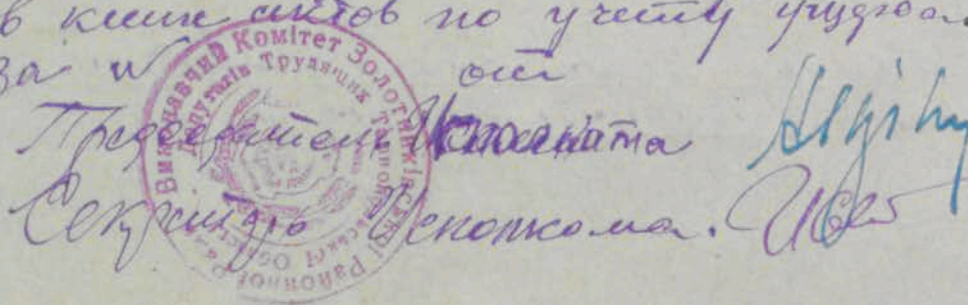 в книге актов по учету
за № от
Председатель
Секретарь Исполкома.
Виконавчий Комітет Золотниківської Районної Ради
Депутатів Трудящих Тарнопольської Області